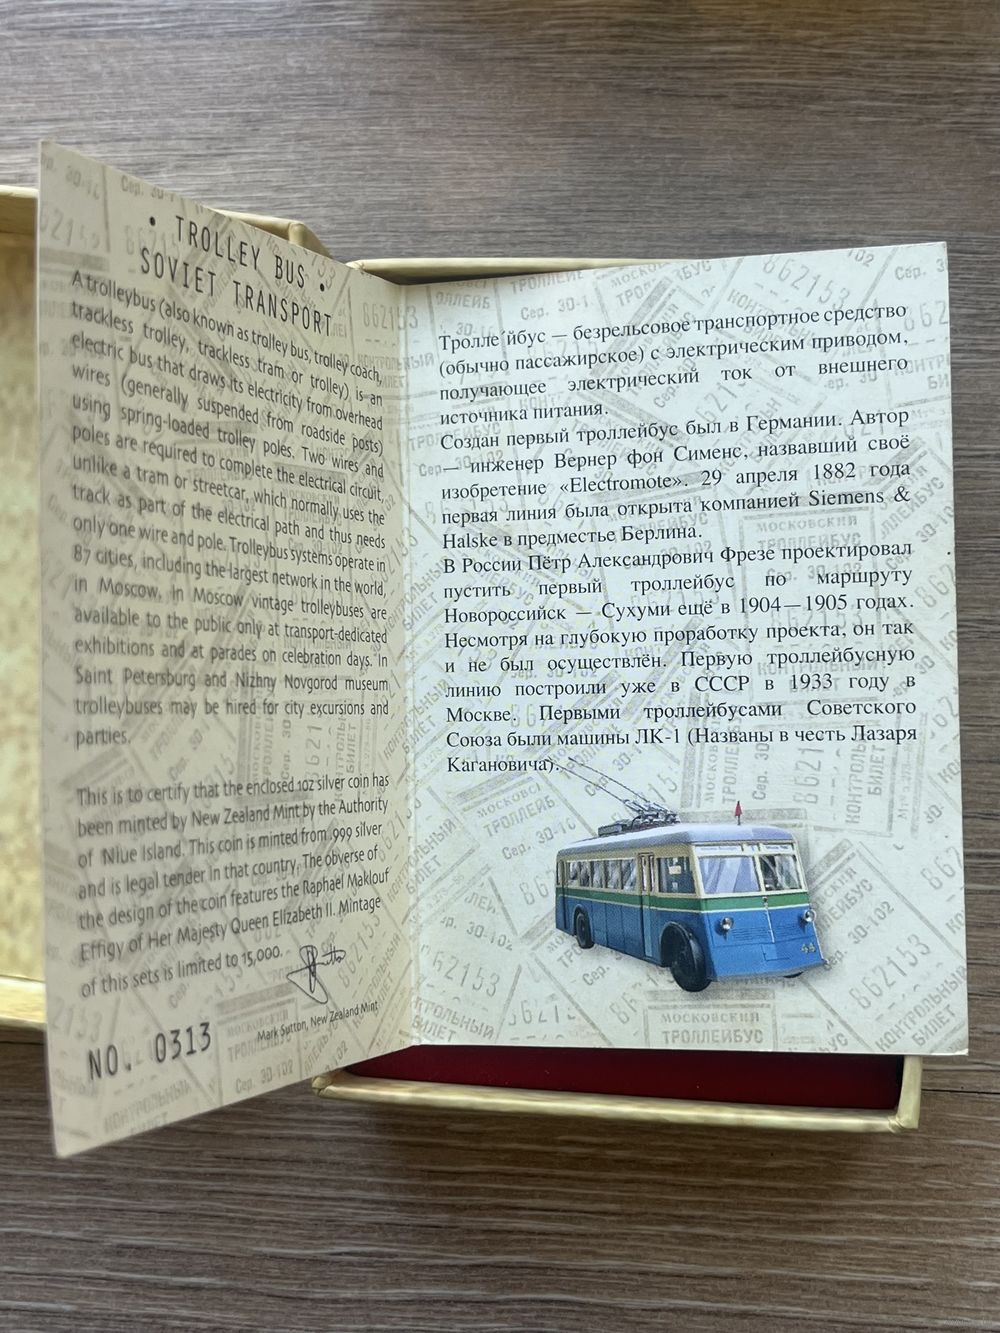 • TROLLEY BUS •
SOVIET TRANSPORT
A trolleybus (also known as trolley bus, trolley coach,
trackless trolley, trackless tram or trolley) is an
electric bus that draws its electricity from overhead
wires (generally suspended from roadside posts)
using spring-loaded trolley poles. Two wires and
poles are required to complete the electrical circuit,
unlike a tram or streetcar, which normally uses the
track as part of the electrical path and thus needs
only one wire and pole. Trolleybus systems operate in
87 cities, including the largest network in the world,
in Moscow. In Moscow vintage trolleybuses are
available to the public only at transport-dedicated
exhibitions and at parades on celebration days. In
Saint Petersburg and Nizhny Novgorod museum
trolleybuses may be hired for city excursions and
parties.
This is to certify that the enclosed 1oz silver coin has
been minted by New Zealand Mint by the Authority
of Niue Island. This coin is minted from .999 silver
and is legal tender in that country. The obverse of
the design of the coin features the Raphael Maklouf
Effigy of Her Majesty Queen Elizabeth II. Mintage
of this sets is limited to 15,000.
Mark Sutton, New Zealand Mint
NO. 0313
Тролле´йбус — безрельсовое транспортное средство
(обычно пассажирское) с электрическим приводом,
получающее электрический ток от внешнего
источника питания.
Создан первый троллейбус был в Германии. Автор
— инженер Вернер фон Сименс, назвавший своё
изобретение «Electromote». 29 апреля 1882 года
первая линия была открыта компанией Siemens &
Halske в предместье Берлина.
В России Пётр Александрович Фрезе проектировал
пустить первый троллейбус по маршруту
Новороссийск — Сухуми ещё в 1904—1905 годах.
Несмотря на глубокую проработку проекта, он так
и не был осуществлён. Первую троллейбусную
линию построили уже в СССР в 1933 году в
Москве. Первыми троллейбусами Советского
Союза были машины ЛК-1 (Названы в честь Лазаря
Кагановича).
МОСКОВСКИЙ
ТРОЛЛЕЙБУС
Сер. 30-102
862153
КОНТРОЛЬНЫЙ
БИЛЕТ